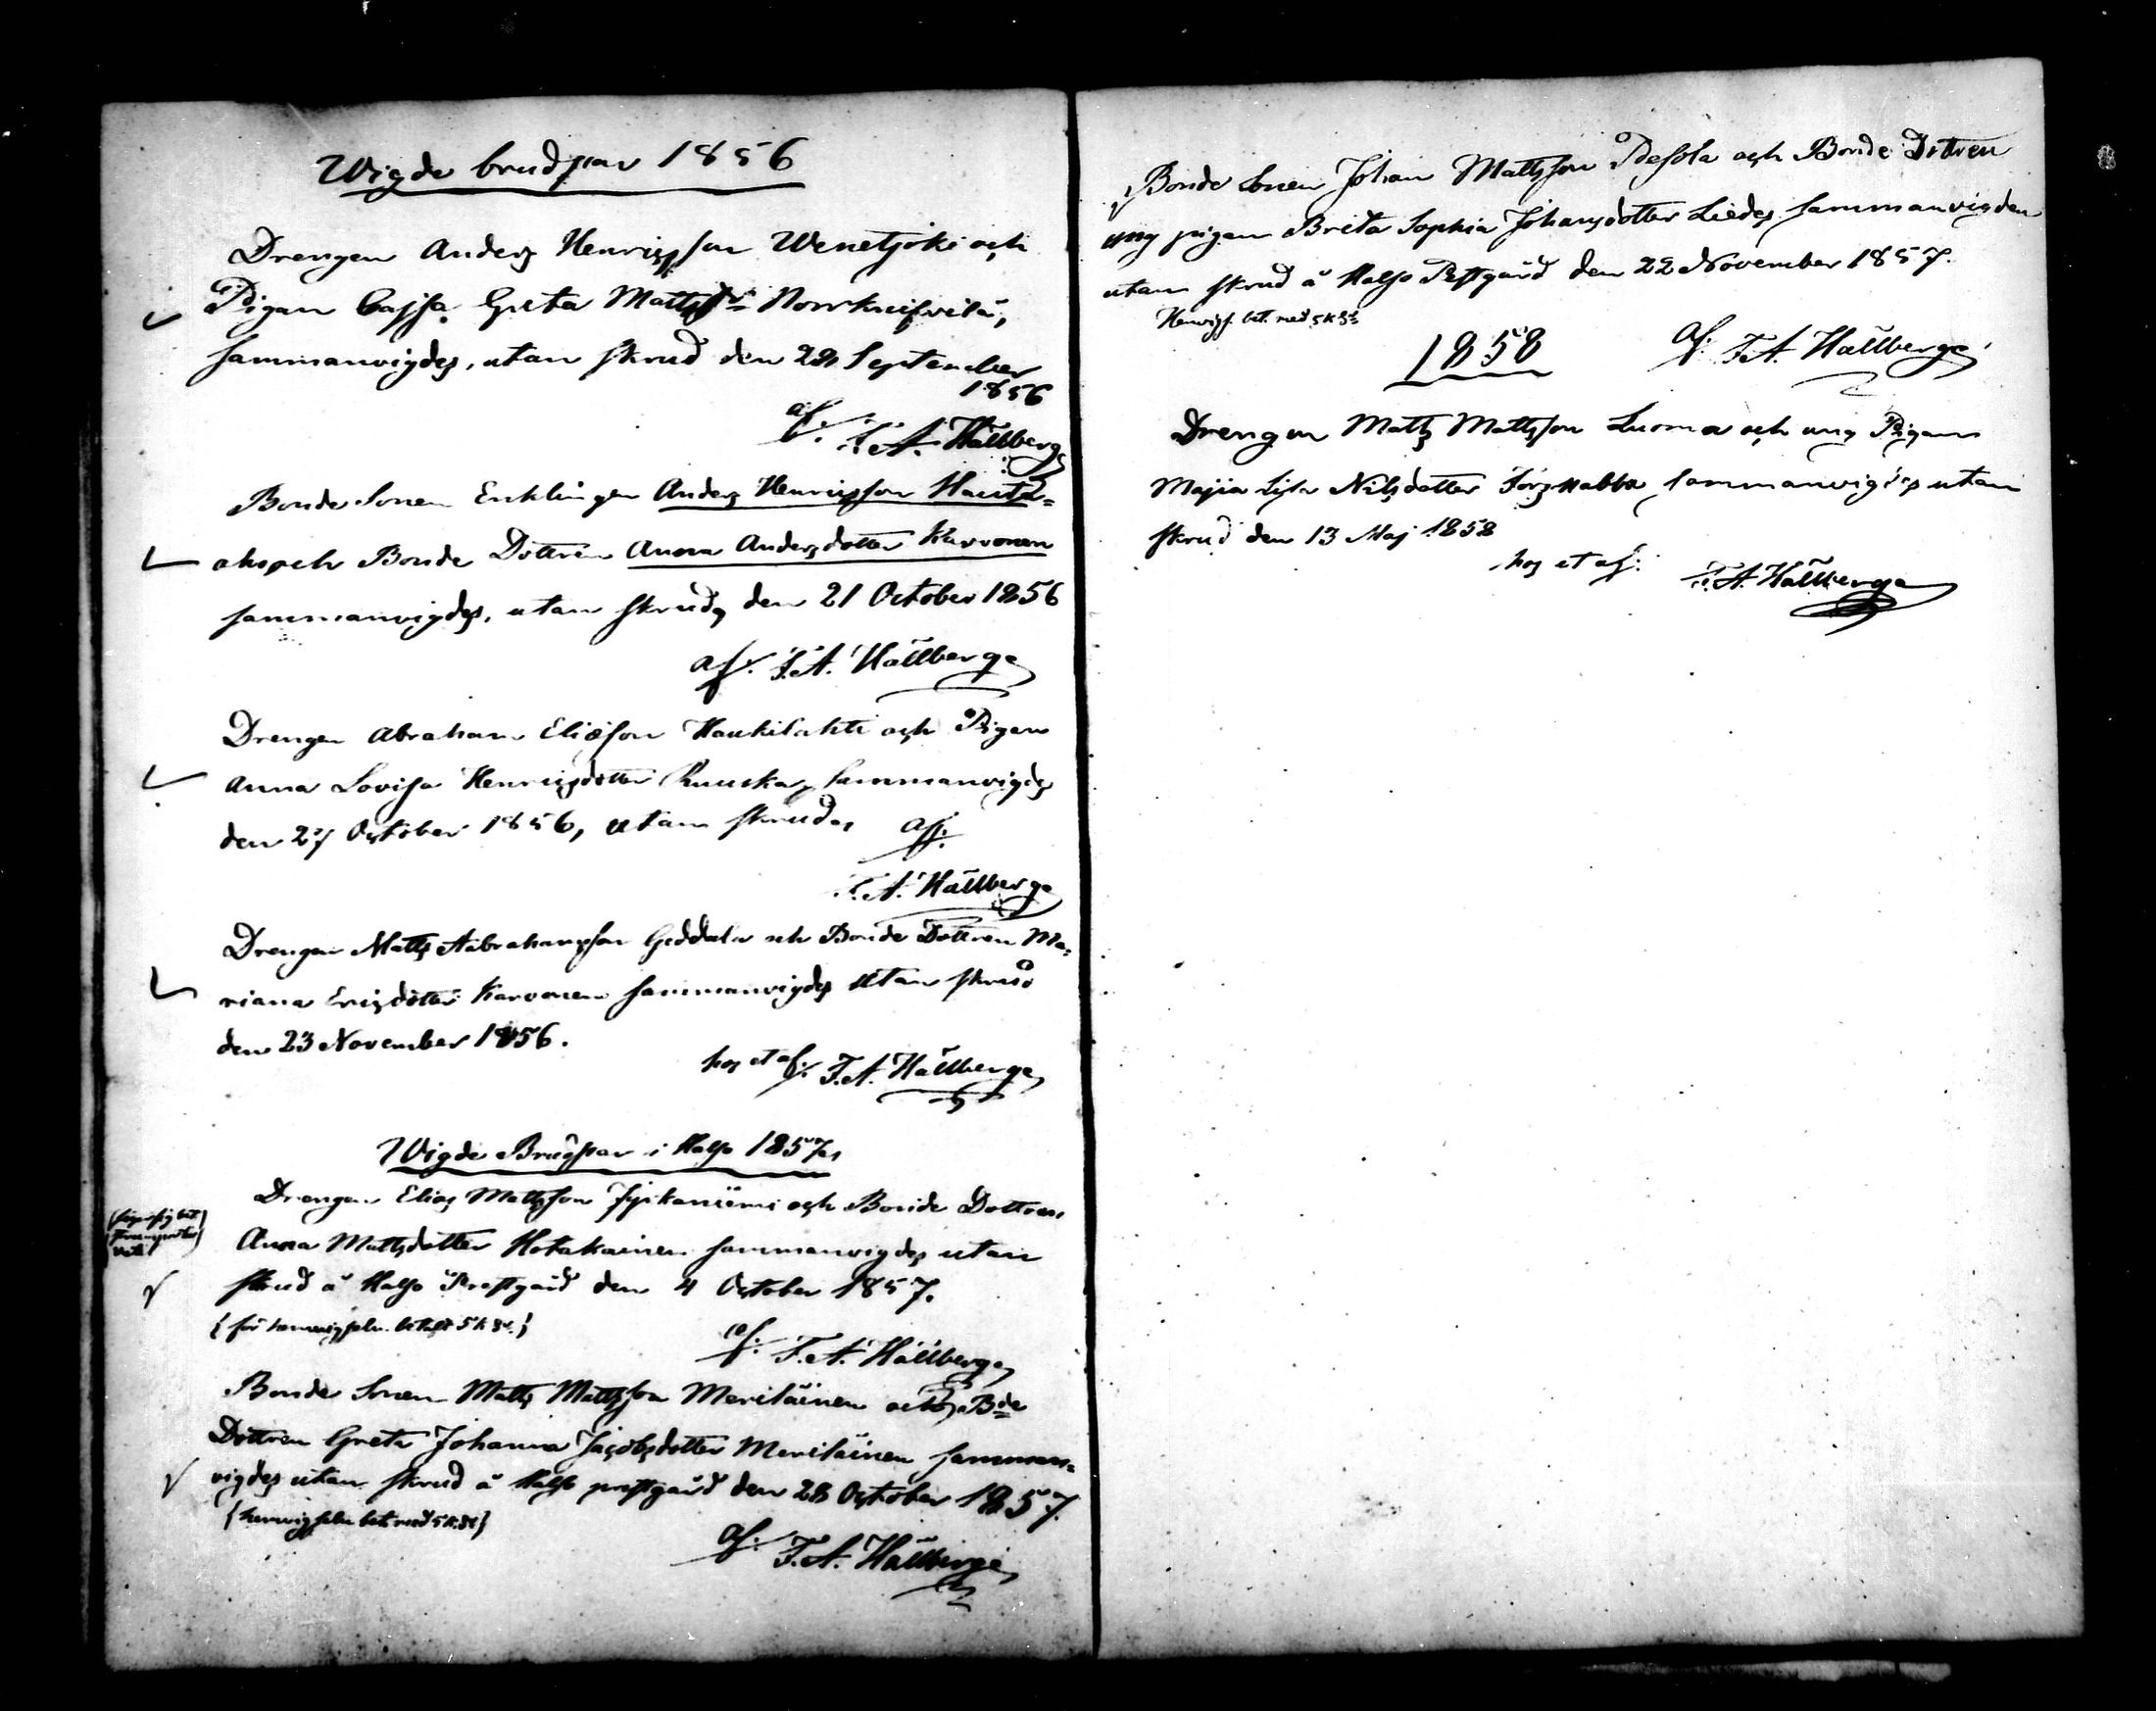 Wigde brudpar 1856
Drengen Anders Henricsson Wenetjoki och
Pigan Cajsa Greta Mattsdr
sammanvigdes, utan skrud den 28 September
1856
af: F. A. Hällberg
Bonde Sonen Enklingen Anders Henricsson Hauta-
aho och Bonde Dottren Anna Andersdotter Karvonen
sammanvigdes, utan skrud, den 21 October 1856
af: F. A. Hällberg
Drengen Abraham Eliæson Haukilahti och Pigan
Anna Lovisa Henricsdotter Ruuska, sammanvigdes
den 27 October 1856, utan skrud, af:
F. A. Hällberg
Drengen Matts Aabrahamsson Geddala och Bonde Dottren Ma-
riana Ericsdotter Karvonen sammanvigdes utan skrud
den 23 November 1856.
hos et af: F. A. Hällberg
Wigde Brudpar i Halso 1857
Drengen Elias Mattsson och Bonde Dottren
Anna Mattsdotter Hotakainen sammanvigdes utan
skrud å Halso Prestgård den 4 October 1857.
{för betalt 5 k. Sr.}
af: F. A. Hällberg
Bonde Sonen Matts Mattsson Meriläinen och Bde
Dottren Greta Johanna Jacobsdotter Meriläinen samman-
vigdes utan skrud å Halso prestgård den 28 October 1857.
bet. med 5 k. Sr}
af: F. A. Hällberg
Bonde Sonen Johan Mattsson Pesola och Bonde Dottren
ung pigan Brita Sophia Johansdotter Liedes sammanvigden
utan skrud å Halso Pestgård den 22 November 1857.
bet. med 5 k Sr
1858
af: F. A. Hällberg
Drengen Matts Mattsson Luoma och ung Pigan
Majia Lisa Nilsdotter Torsnabba sammanvigdes utan
skrud den 13 Maj 1858
hos et af: F. A. Hällberg